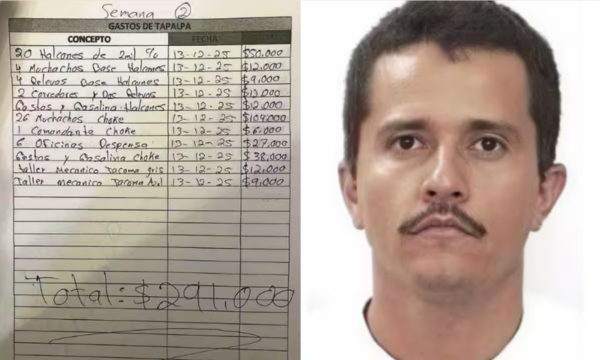 Semana ②
GASTOS DE TAPALPA
CONCEPTO FECHA
20 Halcones de 2mil % 13-12-25 $50,000
4 Muchachos Base Halcones 13-12-25 $12,000
4 Relevos Base Halcones 13-12-25 $9,000
2 Corredores y Dos Relevos 13-12-25 $13,000
Gastos y Gasolina Halcones 13-12-25 $12,000
26 Muchachos Choke 13-12-25 $104,000
1 Comandante Choke 13-12-25 $6,000
6 Oficinas Despensa 13-12-25 $27,000
Gastos y Gasolina Choke 13-12-25 $38,000
Taller Mecanico Tacoma gris 13-12-25 $12,000
Taller Mecanico Tacoma Azul 13-12-25 $9,000
Total: $291,000